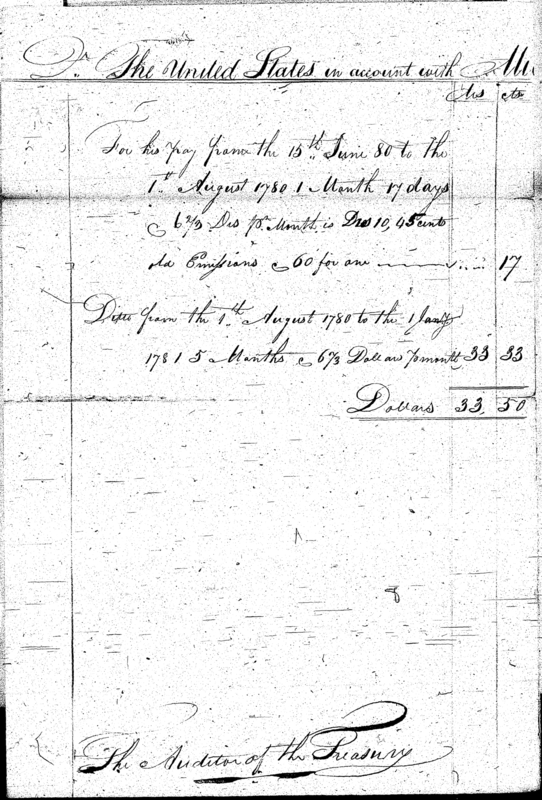 Dr. The United States in account with Mi
Drs cts
For his pay from the 15th June 80 to the
1st August 1780 1 Month 17 days
@ 6 2/3 Drs pr Month is Drs 10,45 cents
old Emissions @ 60 for one 17
Ditto from the 1st August 1780 to the 1 Jany
1781 5 Months @ 6 2/3 Dollars pr month 33 33
Dollars 33. 50
8
The Auditor of the Treasury